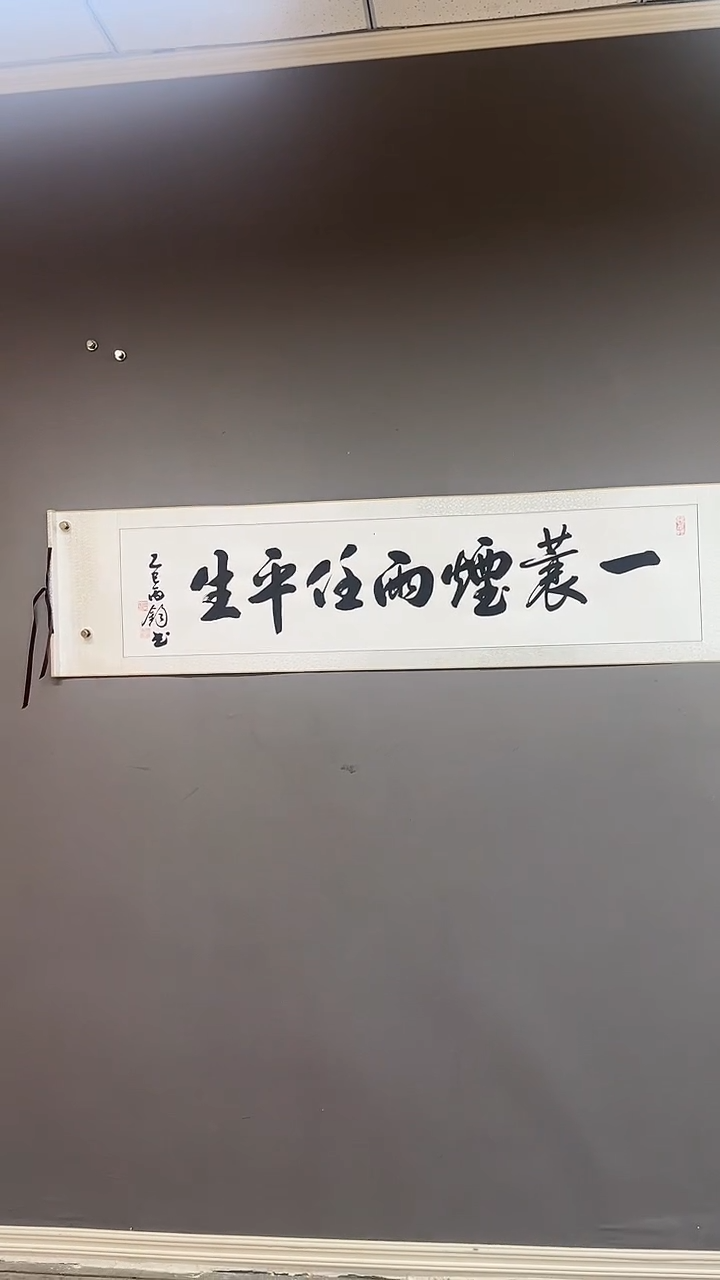 一蓑煙雨任平生
乙巳 鈞书